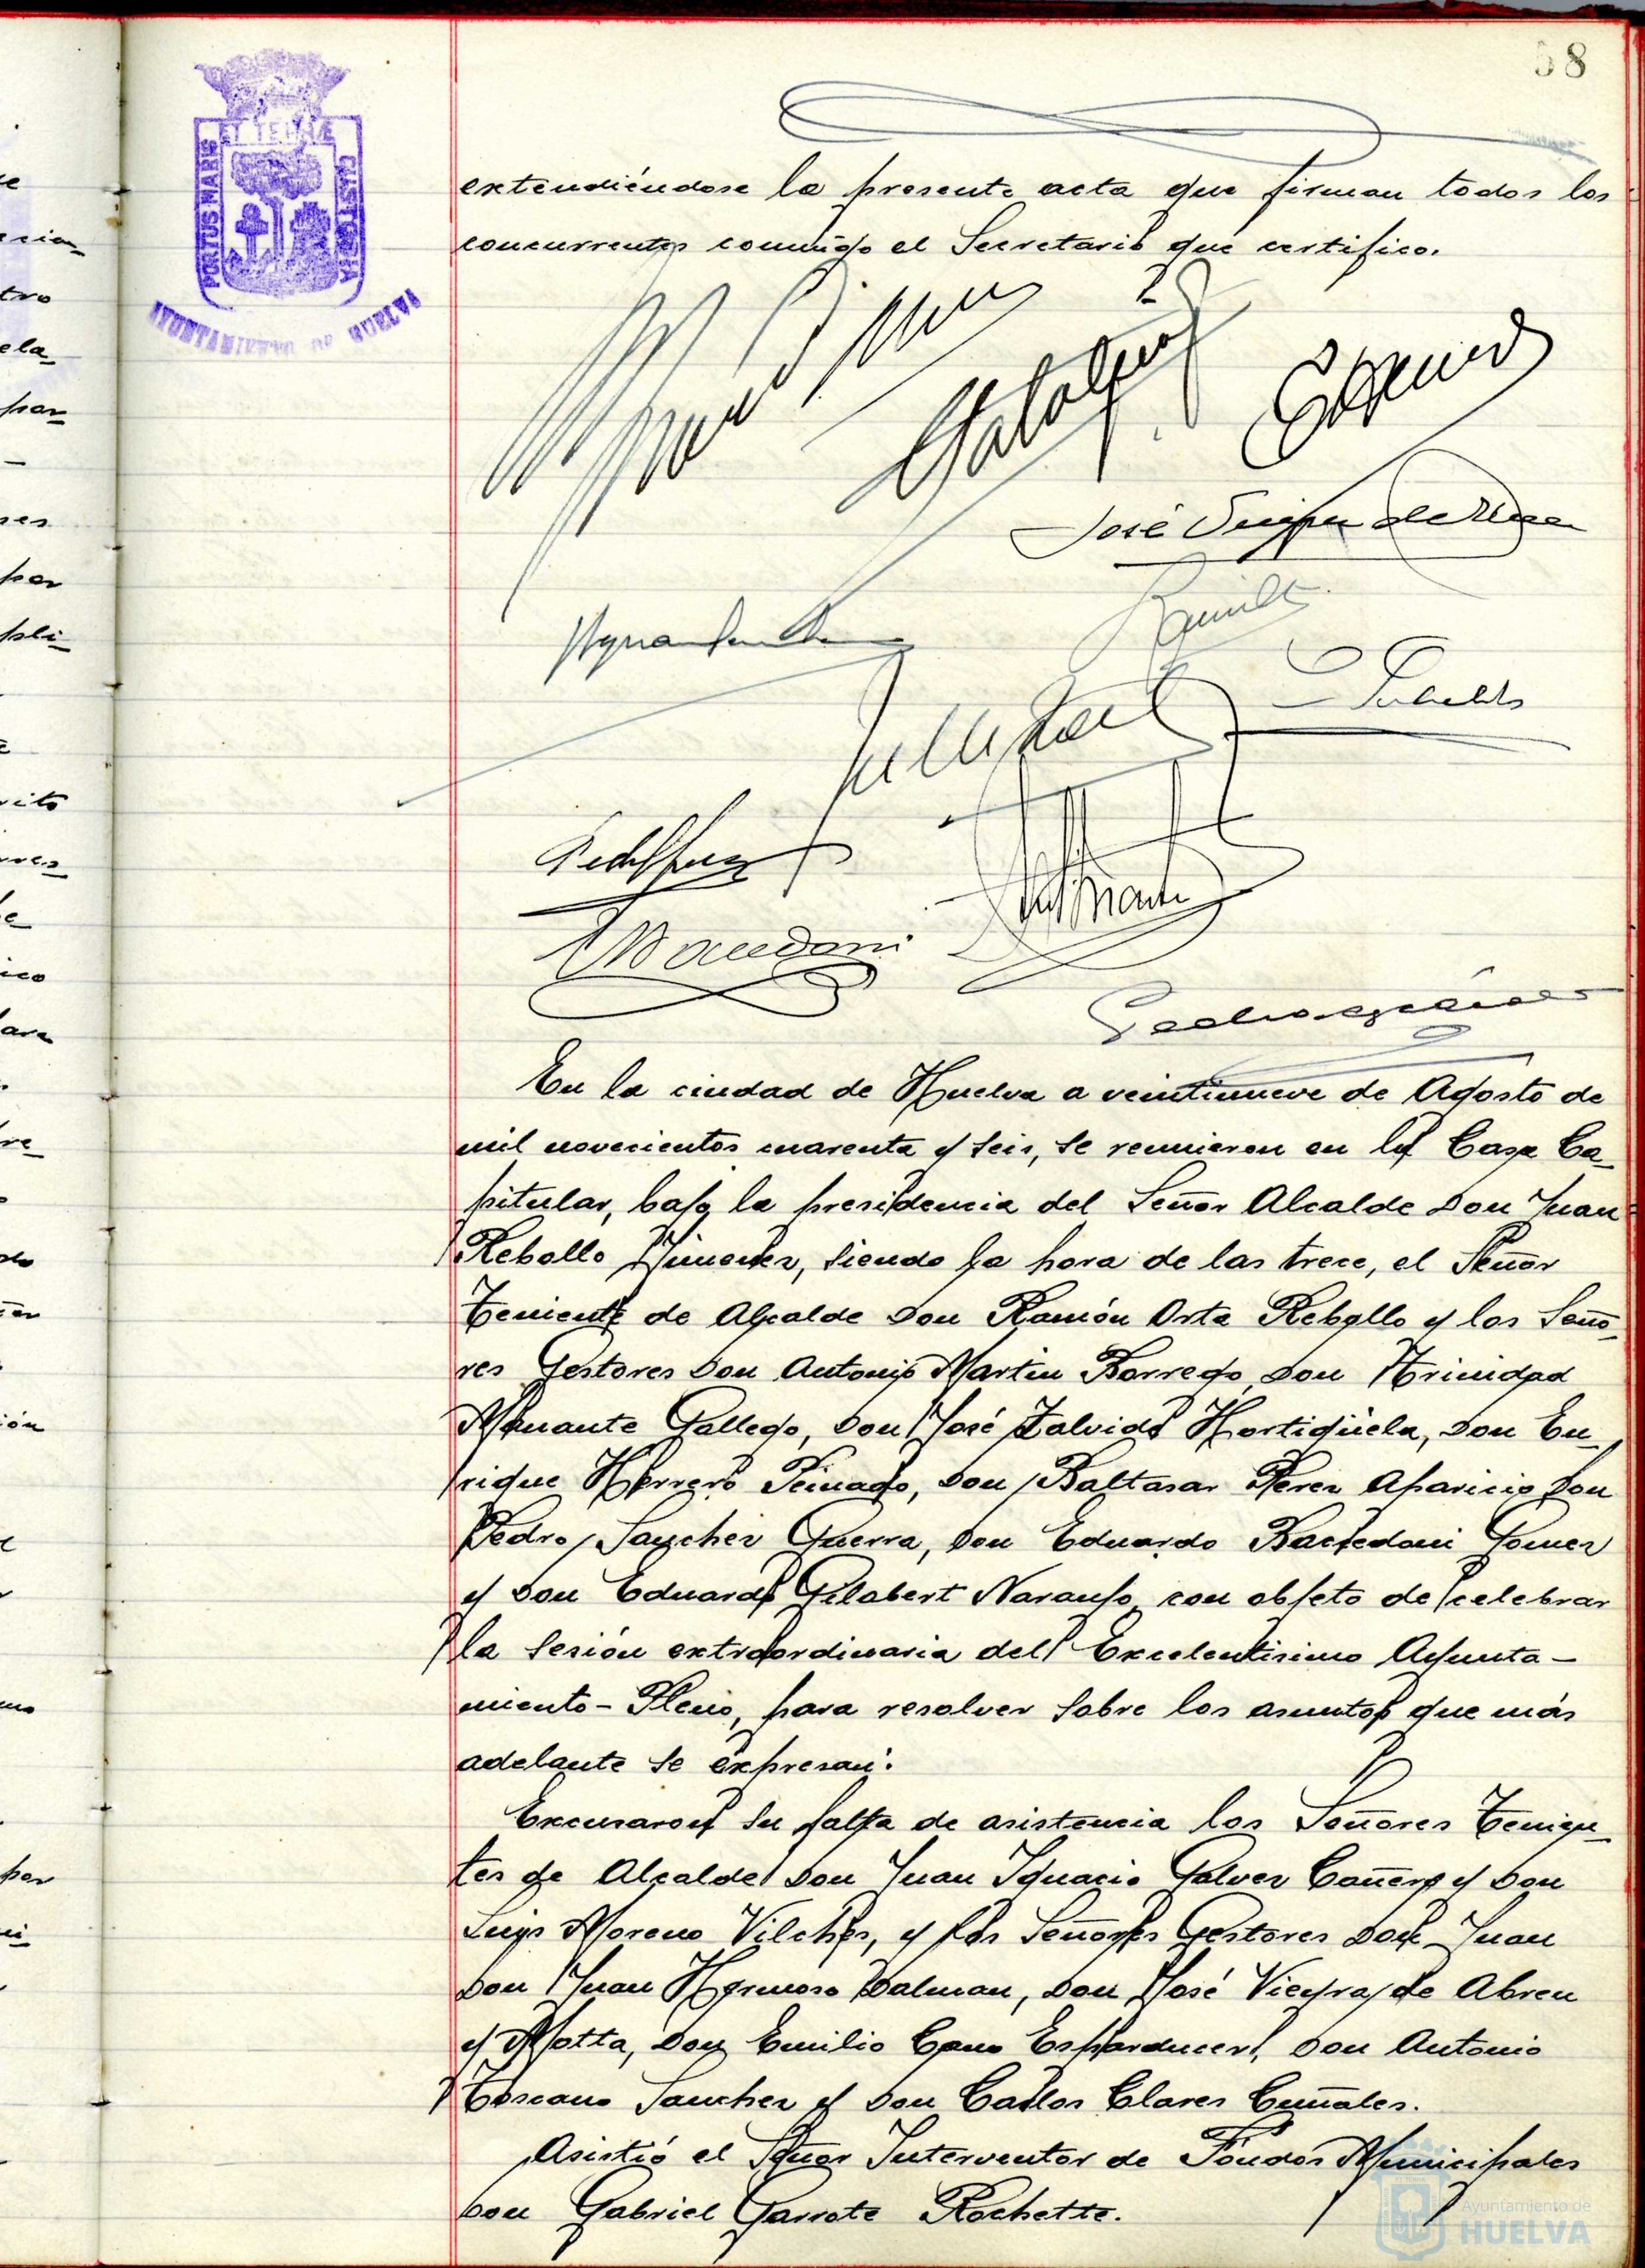 58
PORTUS MARIS
ET TERRÆ
CUSTODIA
AYUNTAMIENTO DE HUELVA
extendiéndose la presente acta que firman todos los
concurrentes conmigo el Secretario que certifico.
En la ciudad de Huelva a veintinueve de Agosto de
mil novecientos cuarenta y seis, se reunieron en la Casa Ca-
pitular, bajo la presidencia del Señor Alcalde Don Juan
Rebollo Jimenez, siendo la hora de las trece, el Señor
Teniente de Alcalde Don Ramón Orta Rebollo y los Seño-
res Gestores Don Antonio Martin Borrego, Don Trinidad
Mquante Gallego, Don José Zalvide Hortigüela, Don En-
rique Herrero Peinado, Don Baltasar Perez Aparicio Don
Pedro Sanchez Guerra, Don Eduardo Bacedoni Gomez
y Don Eduardo Gilabert Naranjo, con objeto de celebrar
la sesión extraordinaria del Excelentisimo Ayunta-
miento-Pleno, para resolver sobre los asuntos que más
adelante se expresan.
Excusaron su falta de asistencia los Señores Tenien-
tes de Alcalde Don Juan Ignacio Galvez Cañero y Don
Luis Moreno Vilches, y los Señores Gestores Don Juan
Don Juan Hermoso Dalman, Don José Vieyra de Abreu
y Motta, Don Emilio Cano Esparducer, Don Antonio
Toscano Sanchez y Don Carlos Clares Cumales.
Asistió el Señor Interventor de Fondos Municipales
Don Gabriel Garrote Rochette.
Ayuntamiento de
HUELVA